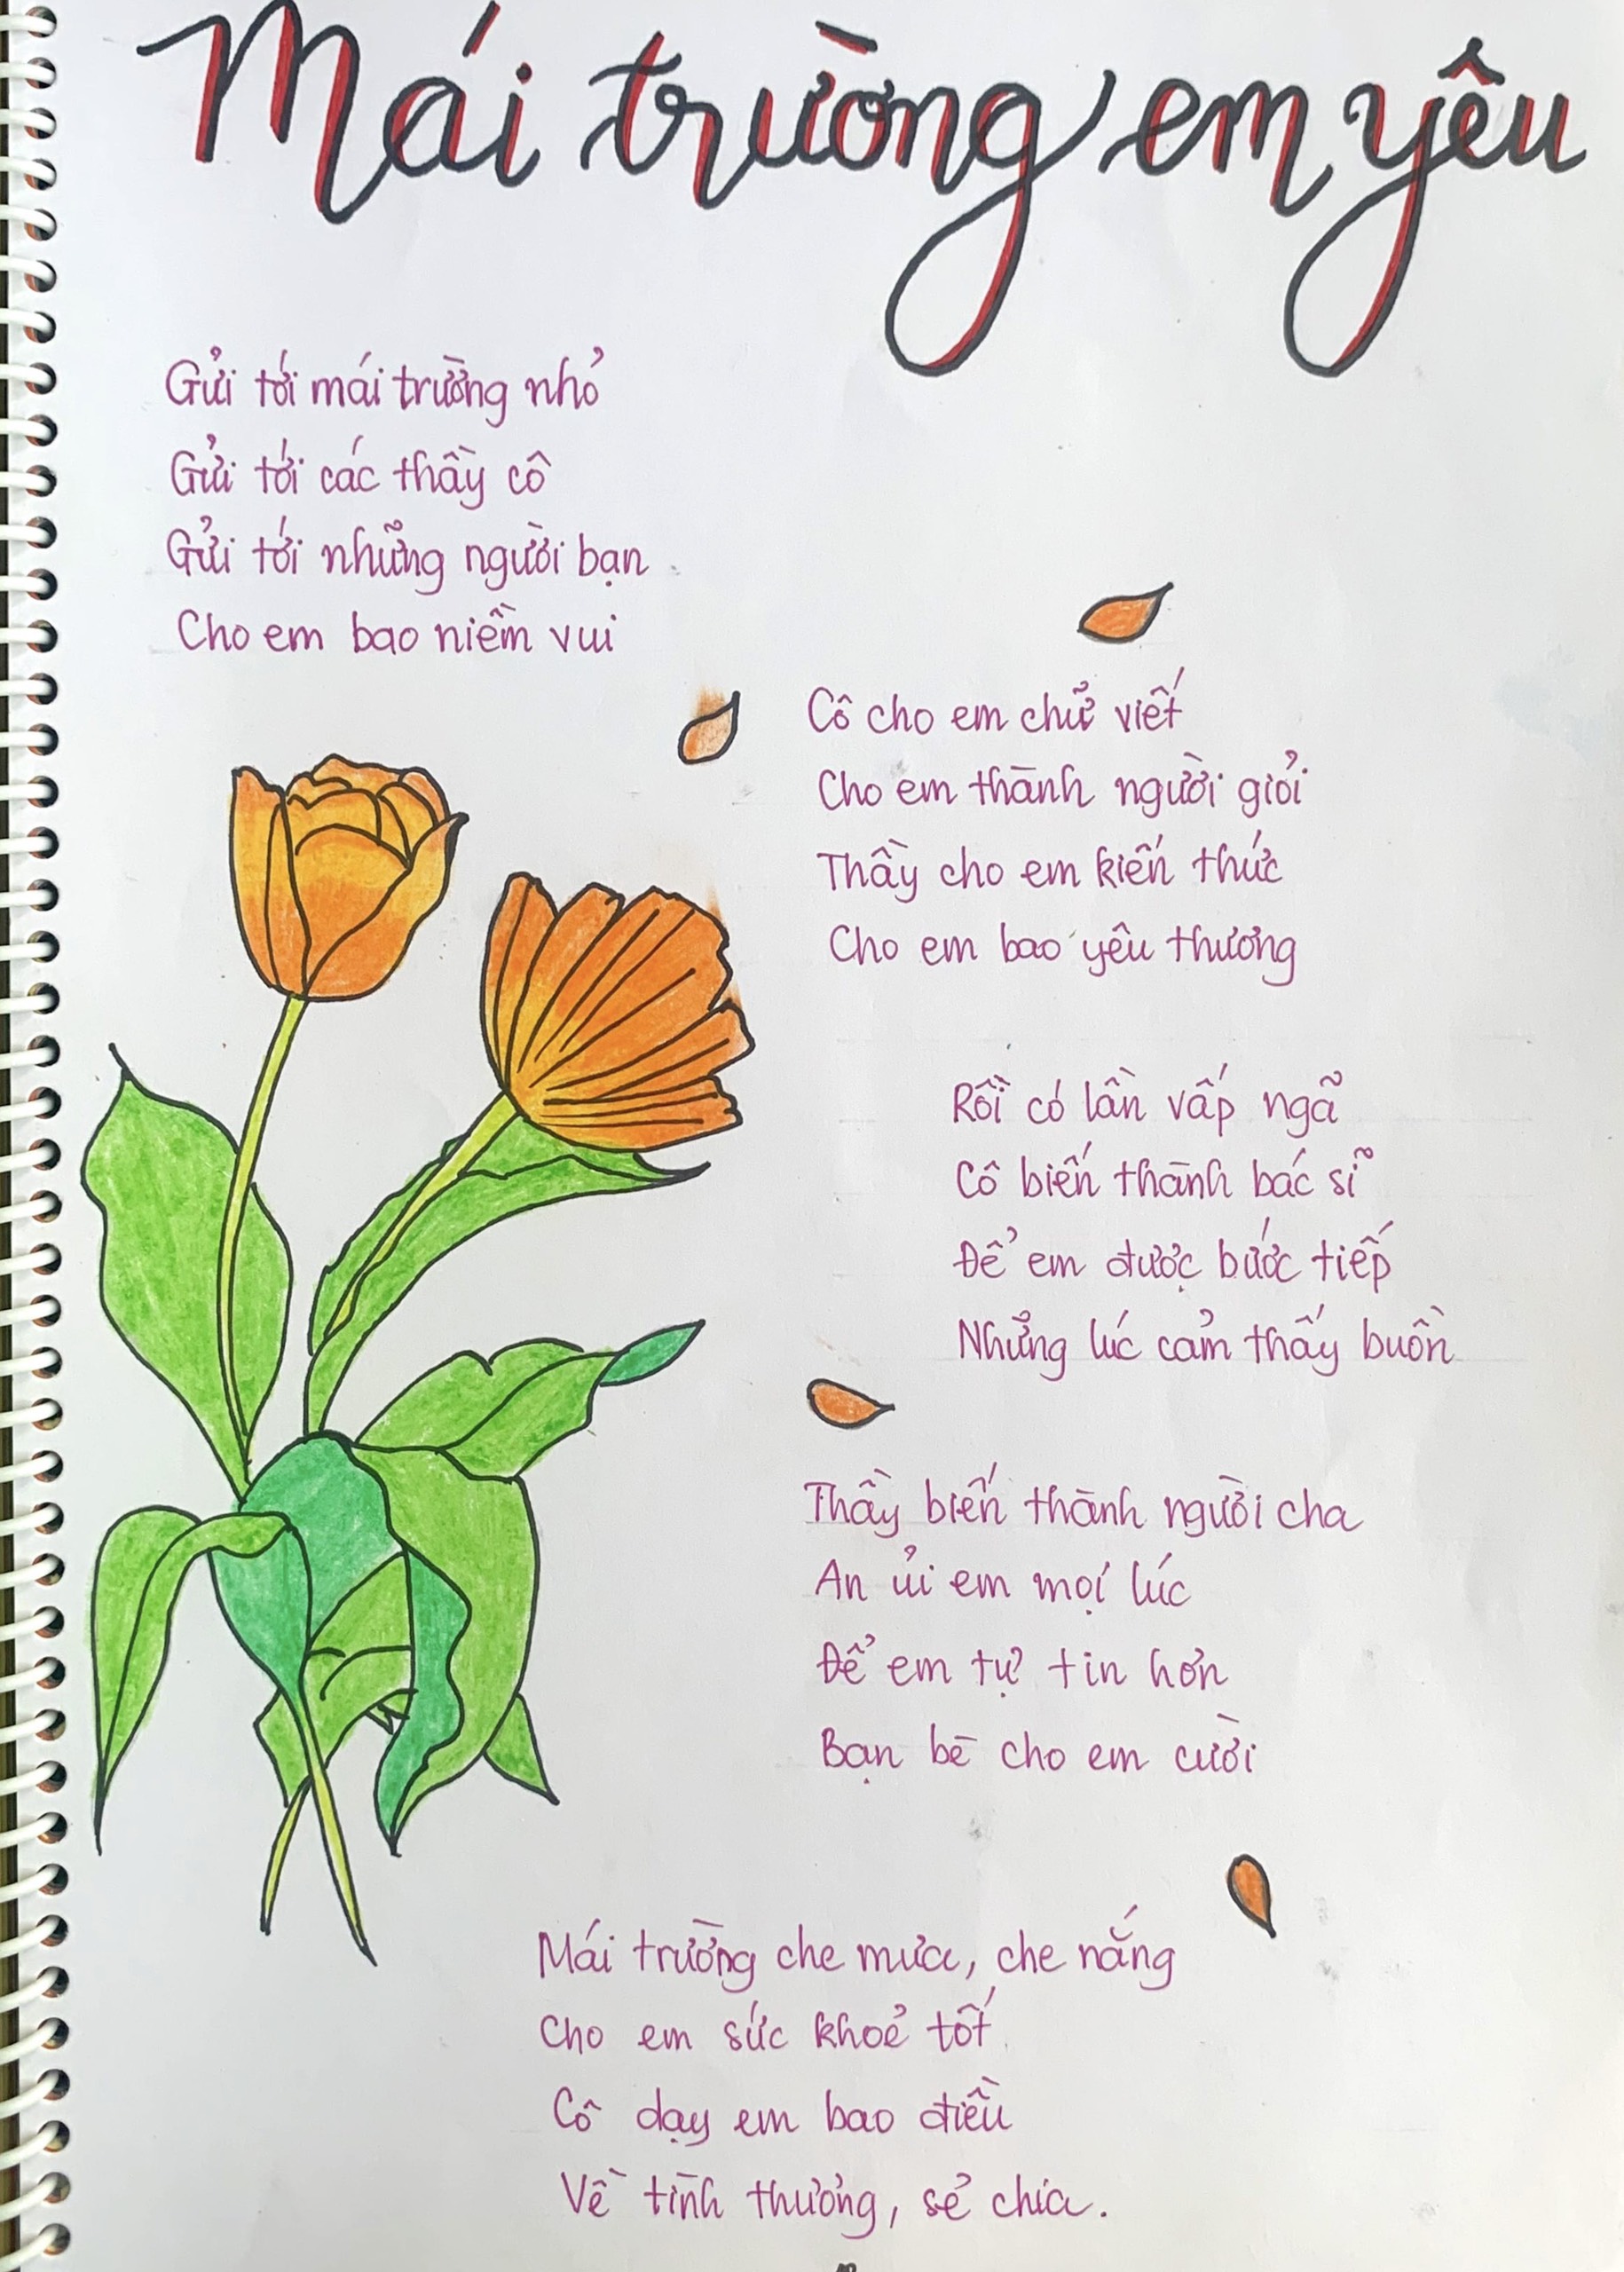 Mái trường em yêu
Gửi tới mái trường nhỏ
Gửi tới các thầy cô
Gửi tới những người bạn
Cho em bao niềm vui
Cô cho em chữ viết
Cho em thành người giỏi
Thầy cho em kiến thức
Cho em bao yêu thương
Rồi có lần vấp ngã
Cô biến thành bác sĩ
Để em được bước tiếp
Những lúc cảm thấy buồn
Thầy biến thành người cha
An ủi em mọi lúc
Để em tự tin hơn
Bạn bè cho em cười
Mái trường che mưa, che nắng
Cho em sức khoẻ tốt
Cô dạy em bao điều
Về tình thương, sẻ chia.